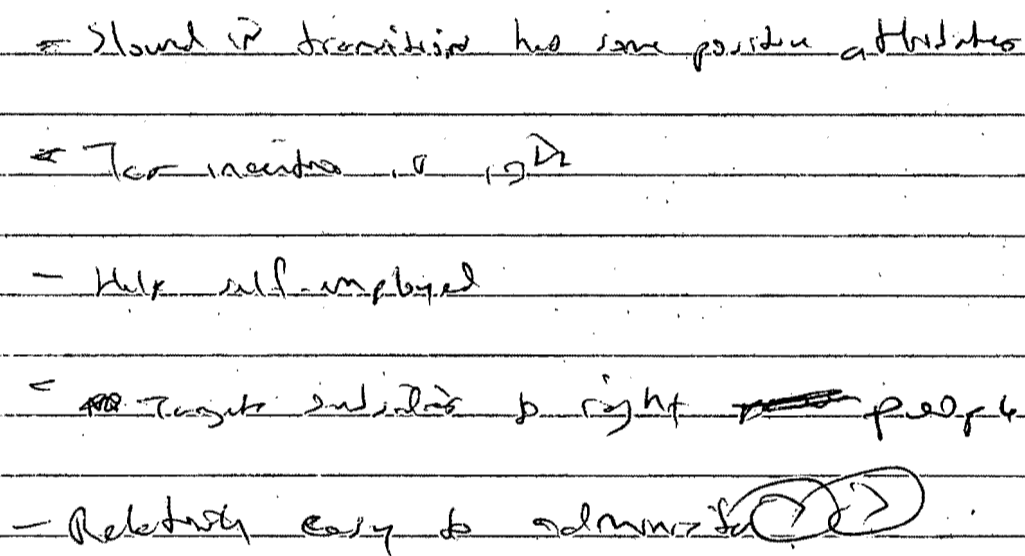 - Slowed in transition has some positive attributes
- Tax incentive is right
- Help self-employed
- Targets subsidies to right people
- Relatively easy to administer (?) (?)